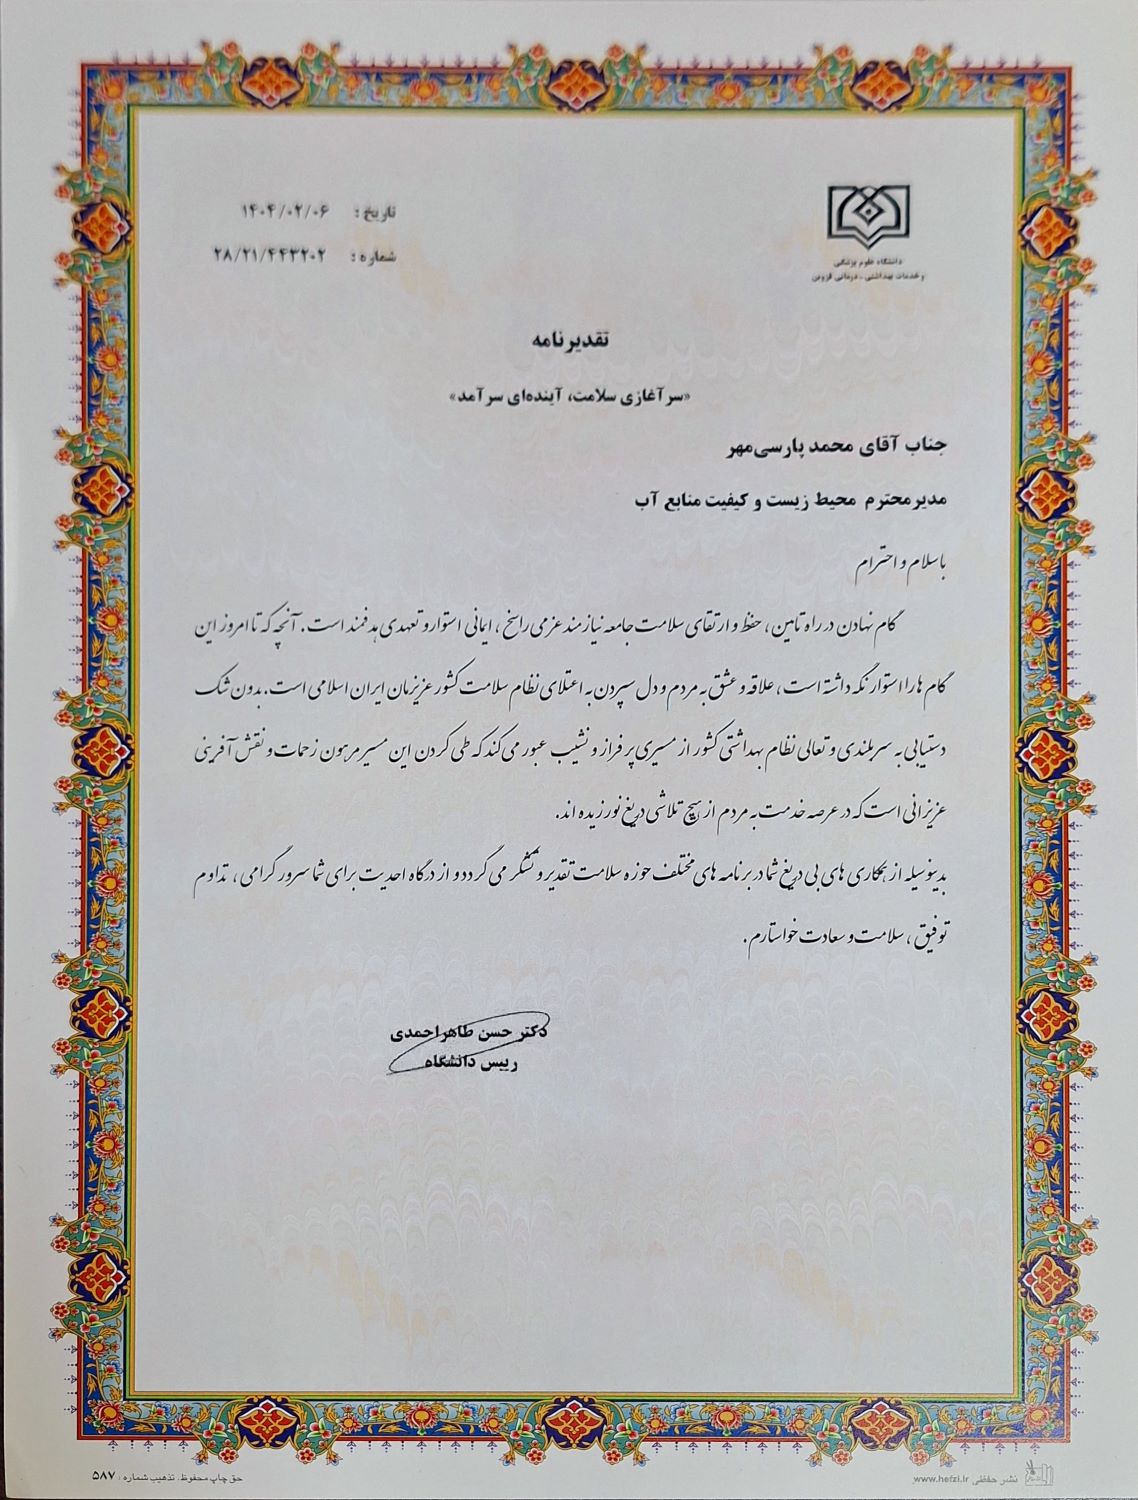 دانشگاه علوم پزشکی
و خدمات بهداشتی - درمانی قزوین
تاریخ : ۱۴۰۴/۰۲/۰۶
شماره : ۲۸/۲۱/۴۴۳۲۰۲
تقدیرنامه
«سرآغازی سلامت، آینده‌ای سرآمد»
جناب آقای محمد پارسی‌مهر
مدیر محترم محیط زیست و کیفیت منابع آب
با سلام و احترام
گام نهادن در راه تامین، حفظ و ارتقای سلامت جامعه نیازمند عزمی راسخ، ایمانی استوار و تعهدی هدفمند است. آنچه که تا امروز این
گام ها را استوار نگه داشته است، علاقه و عشق به مردم و دل سپردن به اعتلای نظام سلامت کشور عزیزمان ایران اسلامی است. بدون شک
دستیابی به سربلندی و تعالی نظام بهداشتی کشور از مسیری پر فراز و نشیب عبور می کند که طی کردن این مسیر مرهون زحمات و نقش آفرینی
عزیزانی است که در عرصه خدمت به مردم از هیچ تلاشی دریغ نورزیده اند.
بدینوسیله از همکاری های بی دریغ شما در برنامه های مختلف حوزه سلامت تقدیر و تشکر می گردد و از درگاه احدیت برای شما سرور گرامی، تداوم
توفیق، سلامت و سعادت خواستارم.
دکتر حسن طاهراحمدی
رییس دانشگاه
نشر حفظی www.hefzi.ir
حق چاپ محفوظ. تذهیب شماره : ۵۸۷